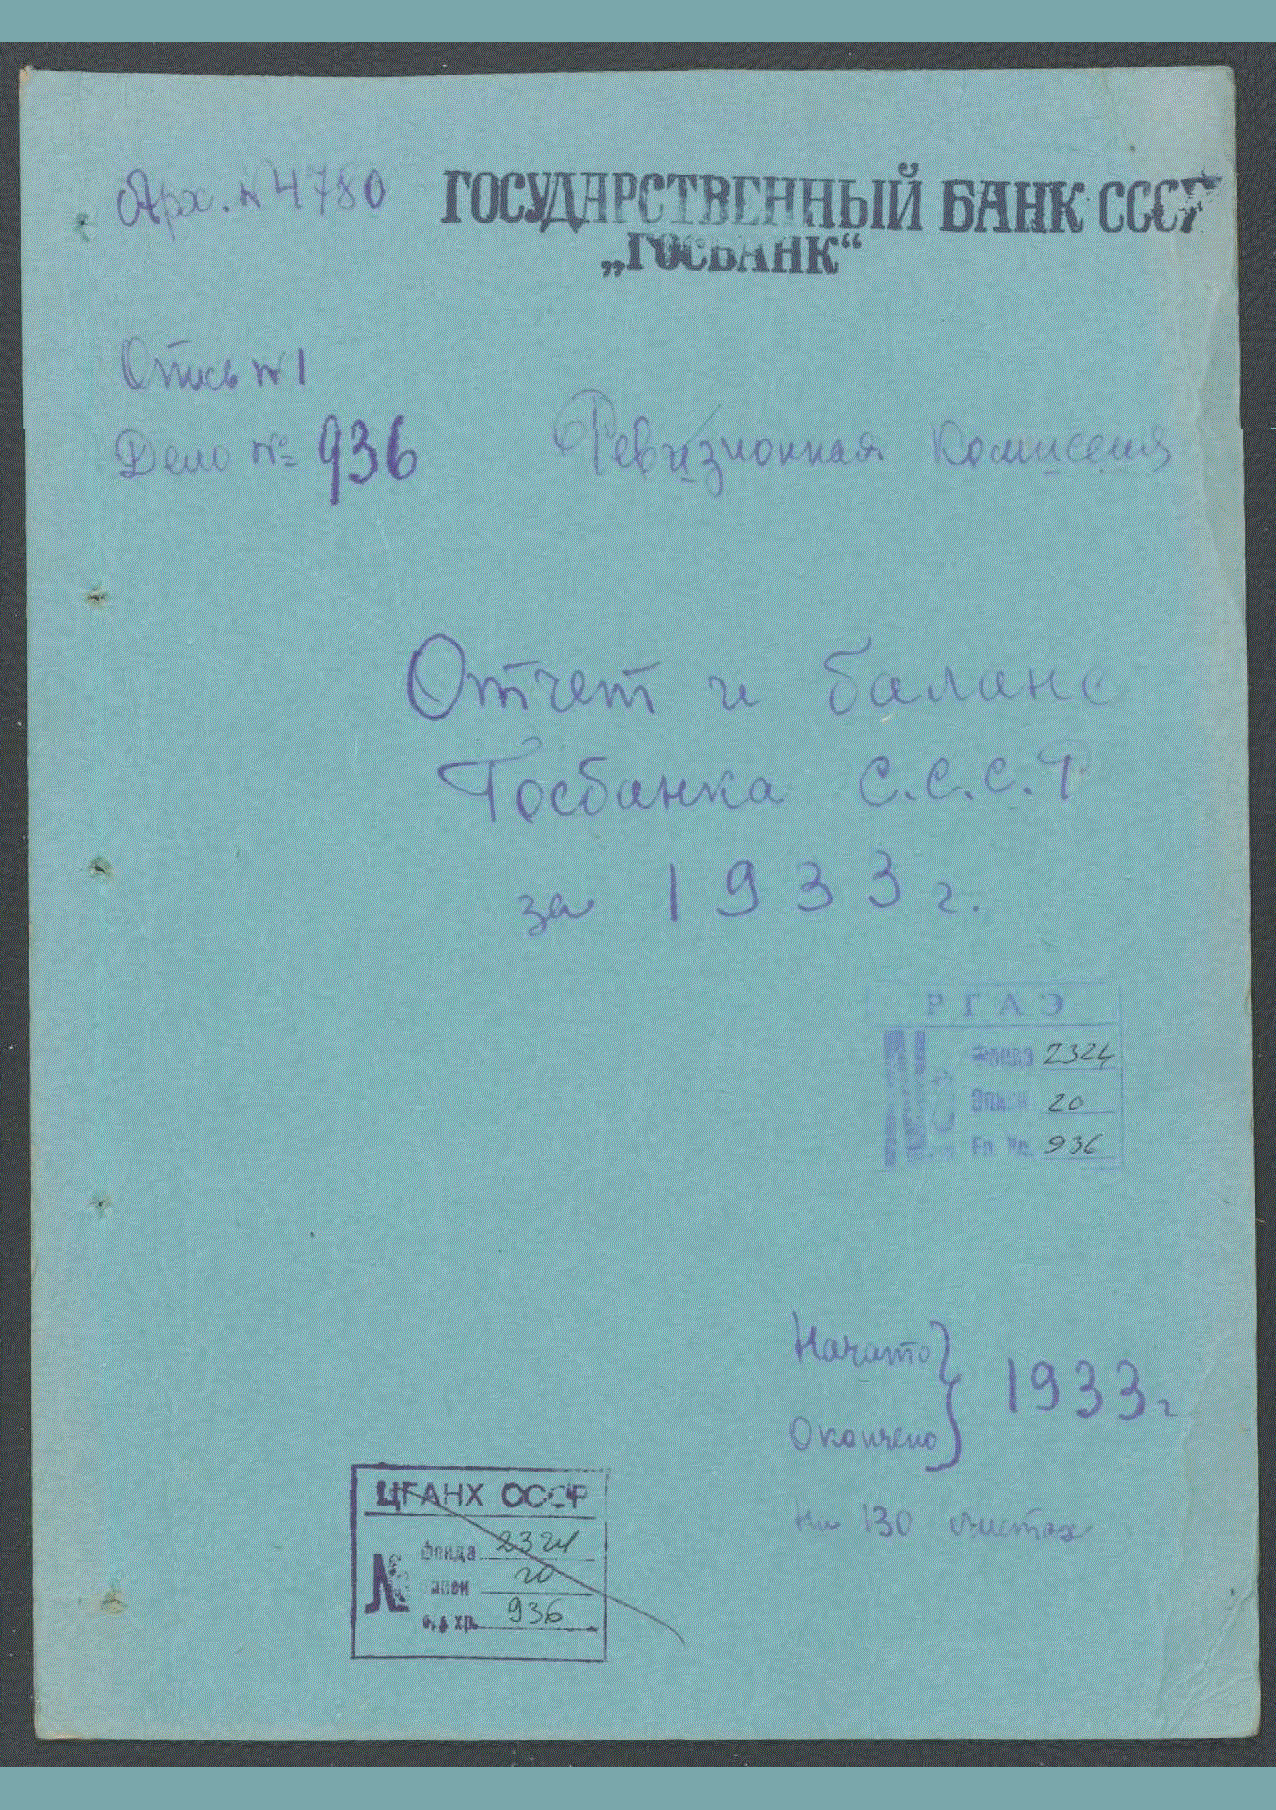 Арх. № 4780
ГОСУДАРСТВЕННЫЙ БАНК СССР
„ГОСБАНК“
Опись № 1
Дело № 936
Ревизионная Комиссия
Отчет и баланс
Госбанка С.С.С.Р
за 1933 г.
РГАЭ
№
Фонда 2324
Описи 20
Ед. хр. 936
Начато
Окончено
1933 г
На 130 листах
ЦГАНХ СССР
№
фонда 2324
описи 20
ед. хр. 936